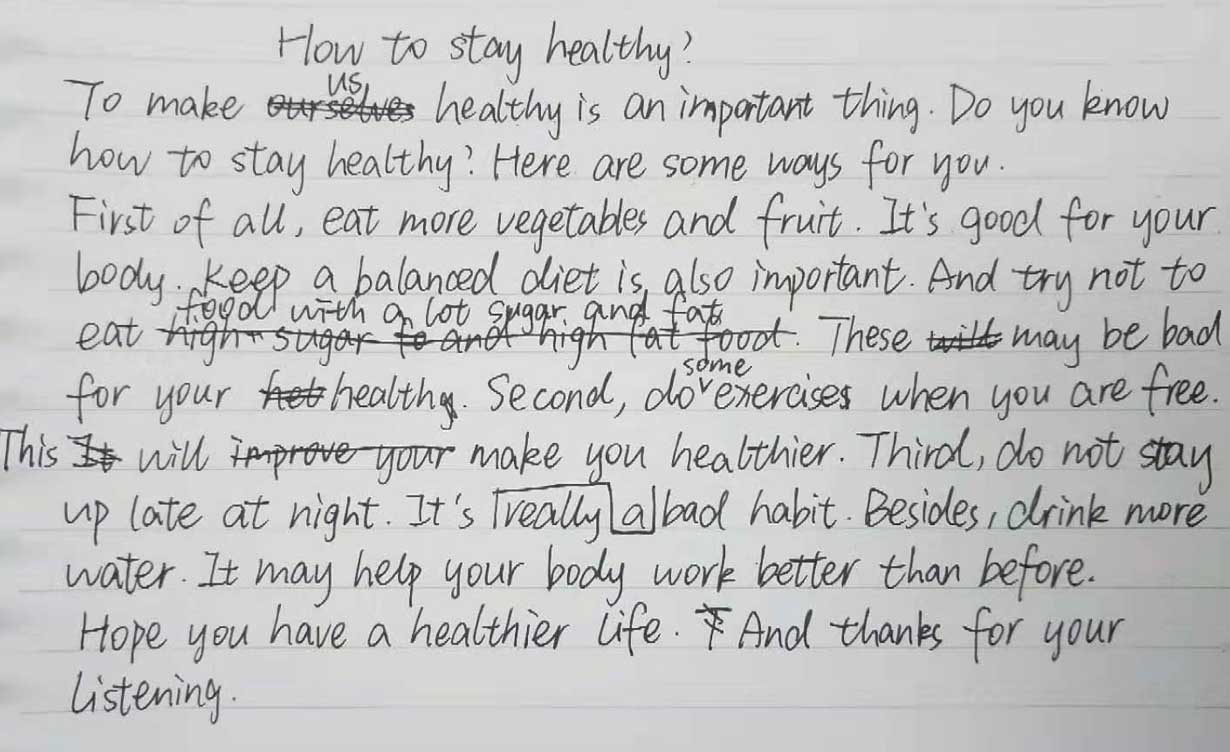 How to stay healthy?
To make us healthy is an important thing. Do you know
how to stay healthy? Here are some ways for you.
First of all, eat more vegetables and fruit. It's good for your
body. Keep a balanced diet is also important. And try not to
eat food with a lot sugar and fat. These may be bad
for your health. Second, do some exercises when you are free.
This will make you healthier. Third, do not stay
up late at night. It's really a bad habit. Besides, drink more
water. It may help your body work better than before.
Hope you have a healthier life. And thanks for your
listening.